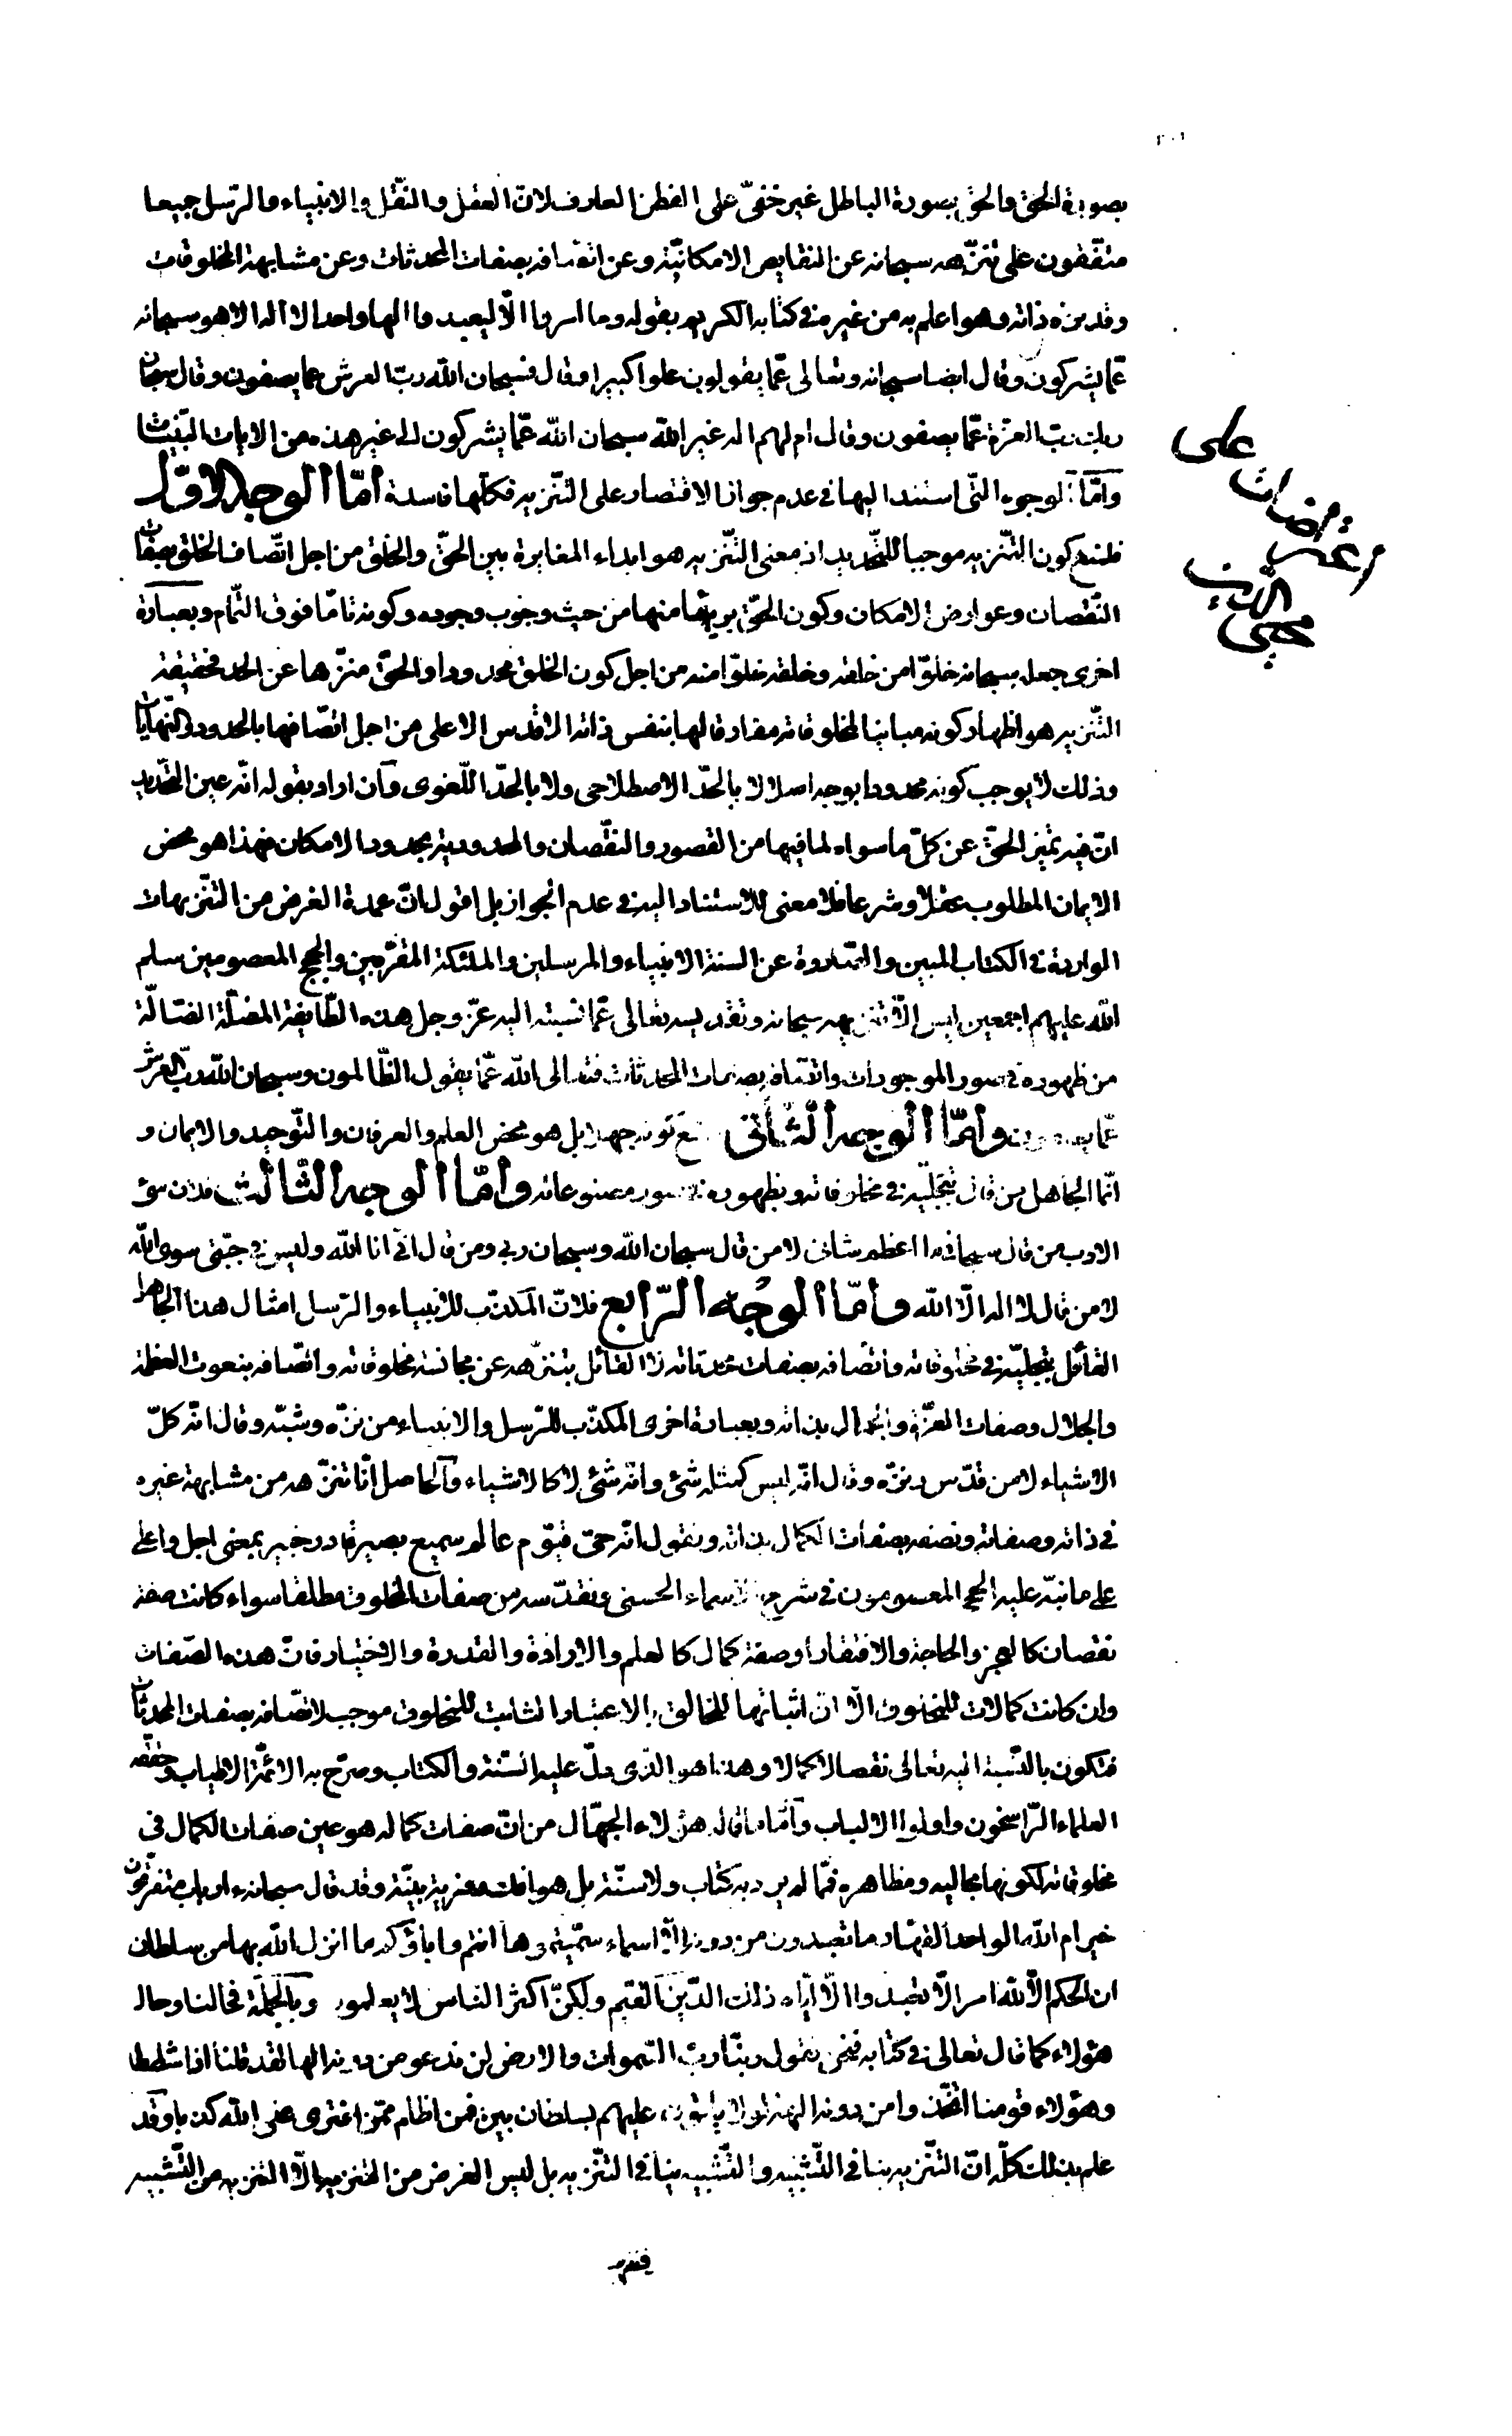 بصورة الحقّ والحقّ بصورة الباطل غير خفىّ على الفطن العارف لانّ العقل والنّقل والانبياء والرّسل جميعا
متّفقون على تنزّهه سبحانه عن النقايص الامكانيّة وعن اتّصافه بصفات المحدثات وعن مشابهة المخلوقات
وقد نزه ذاته وهو اعلم به من غيره فى كتابه الكريم بقوله وما امروا الّا ليعبدوا الها واحدا لا اله الا هو سبحانه
عمّا يشركون وقال ايضا سبحانه وتعالى عمّا يقولون علوا كبيرا وقال فسبحان الله ربّ العرش عما يصفون وقال سبحان
ربك ربّ العزّة عمّا يصفون وقال ام لهم اله غير الله سبحان الله عمّا يشركون الى غير هذه من الايات البيّنات
وامّا الوجوه الّتى استند اليها فى عدم جواز الاقتصار على التنّزيه فكلّها فاسدة امّا الوجه الاوّل
فلمنع كون التّنزيه موجبا للتّحديد اذ معنى التّنزيه هو ابداء المغايرة بين الحقّ والخلق من اجل اتّصاف الخلق بصفات
النّقصان وعوارض الامكان وكون الحقّ بريئا منها من حيث وجوب وجوده وكونه تامّا فوق التّمام وبعبارة
اخرى جعل سبحانه خلوّا من خلقه وخلقه خلوّا منه من اجل كون الخلق محدودا والحقّ منزّها عن الحد فحقيقة
التّنزيه هو اظهار كونه مباينا لمخلوقاته مفارقا لها بنفس ذاته الاقدس الاعلى من اجل اتّصافها بالحدود والنّهايات
وذلك لا يوجب كونه محدودا بوجه اصلا لا بالحدّ الاصطلاحى ولا بالحدّ اللّغوى وان اراد بقوله انّه عين التّحديد
انّ فيه تميّز الحقّ عن كلّ ما سواه لما فيها من القصور والنقّصان والمحدودية بحدود الامكان فهذا هو محض
الايمان المطلوب عقلا وشرعا فلا معنى للاستناد اليه فى عدم الجواز بل اقول انّ عمدة الغرض من التّنزيهات
الواردة فى الكتاب المبين والمتداولة عن السنة الانبياء والمرسلين والملئكة المقرّبين والحجج المعصومين سلم
الله عليهم اجمعين ليس الّا تنزيهه سبحانه وتقديسه تعالى عمّا نسبته اليه عزّ وجل هذه الطّايفة المضلّة الضّالّة
من ظهوره فى صور الموجودات واتّصافه بصفات المحدثات فتعالى الله عمّا يقول الظّالمون وسبحان الله ربّ العرش
عمّا يصفون وامّا الوجه الثّانى فلمنع كونه جهلا بل هو محض العلم والعرفان والتّوحيد والايمان و
انّما الجاهل من قال بتجلّيه فى مخلوقاته وبظهوره فى صور مصنوعاته وامّا الوجه الثّالث فلان سوء
الادب من قال سبحانى ما اعظم شانى لا من قال سبحان الله وسبحان ربى ومن قال انّى انا الله وليس فى جبّتى سوى الله
لا من قال لا اله الّا الله وامّا الوجه الرّابع فلانّ المكذّب للانبياء والرّسل امثال هذا الجاهل
القائل بتجلّيه فى مخلوقاته واتّصافه بصفات محدثاته لا القائل بتنزّهه عن مجانسة مخلوقاته واتّصافه بنعوت العظمة
والجلال وصفات العزّة والجمال بذاته وبعبارة اخرى المكذّب للرّسل والانبياء من نزّه وشبّه وقال انّه كلّ
الاشياء لا من قدّس ونزّه وقال انّه ليس كمثله شئ وانّه شئ لا كالاشياء والحاصل انّا ننزّهه من مشابهة غيره
فى ذاته وصفاته ونصفه بصفات الكمال بذاته ونقول انّه حىّ قيّوم عالم سميع بصير قادر خبير بمعنى اجل واعلى
على ما نبّه عليه الحجج المعصومون فى شرح الاسماء الحسنى ونقدّسه من صفات المخلوق مطلقا سواء كانت صفة
نقصان كالعجز والحاجة والافتقار او صفة كمال كالعلم والارادة والقدرة والاختيار فانّ هذه الصّفات
وان كانت كمالات للمخلوق الّا ان اثباتها للخالق بالاعتبار الثابت للمخلوق موجب لاتّصافه بصفات المحدثات
فتكون بالنّسبة اليه تعالى نقصا لا كمالا وهذا هو الذّى دلّ عليه السّنّة والكتاب وصرّح به الائمّة الاطياب وحقّقه
العلماء الرّاسخون واولوا الالباب وامّا ما قاله هؤلاء الجهّال من انّ صفات كماله هو عين صفات الكمال فى
مخلوقاته لكونها مجاليه ومظاهره فمّا لم يرد به كتاب ولا سنّة بل هو افك وفرية بيّنة وقد قال سبحانه ءارباب متفرّقون
خير ام الله الواحد القهّار ما تعبدون من دونه الّا اسماء سمّيتموها انتم واباؤكم ما انزل الله بها من سلطان
ان الحكم الّا لله امر الّا تعبدوا الّا ايّاه ذلك الدّين القيّم ولكنّ اكثر النّاس لا يعلمون وبالجملة فحالنا وحال
هؤلاء كما قال تعالى فى كتابه فنحن نقول ربّنا ربّ السّموات والارض لن ندعو من دونه الها لقد قلنا اذا شططا
وهؤلاء قومنا اتّخذوا من دونه الهة لولا يأتون عليهم بسلطان بين فمن اظلم ممّن افترى على الله كذبا وقد
علم بذلك كلّه انّ التّنزيه ينافى التّشبيه والتّشبيه ينافى التّنزيه بل ليس الغرض من التنزيه الّا التنزيه من التّشبيه
على
اعتراضات
محيى الدّين